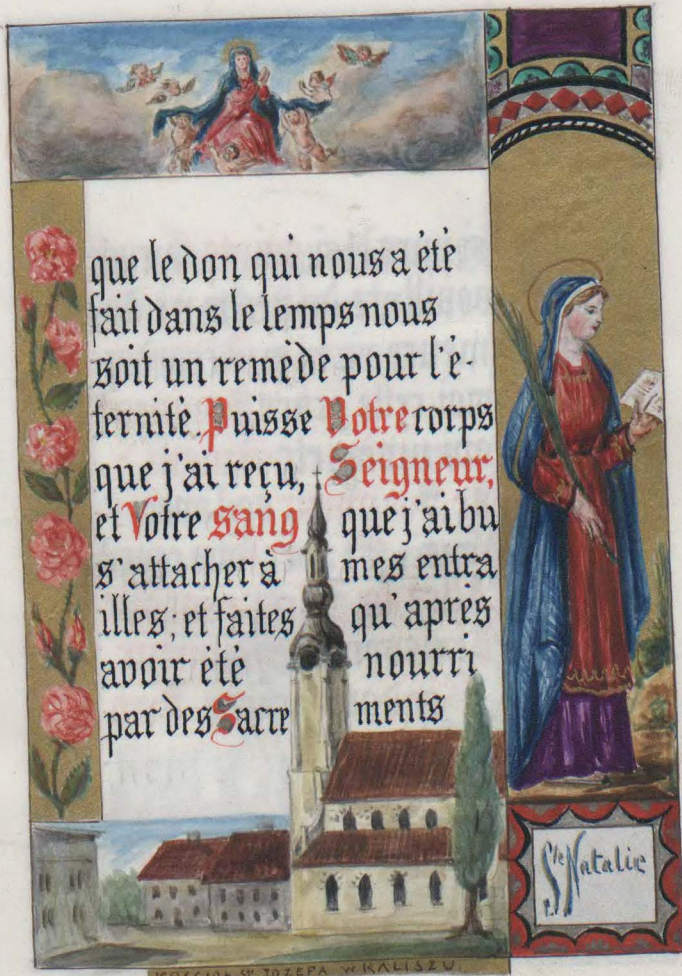 que le don qui nous a été
fait dans le temps nous
soit un remède pour l'é-
ternité. Puisse Votre corps
que j'ai reçu, Seigneur,
et Votre sang que j'ai bu
s'attacher à mes entra
illes; et faites qu'après
avoir été nourri
par des Sacre ments
Ste Natalie
KOŚCIÓŁ ŚW. JÓZEFA W KALISZU.